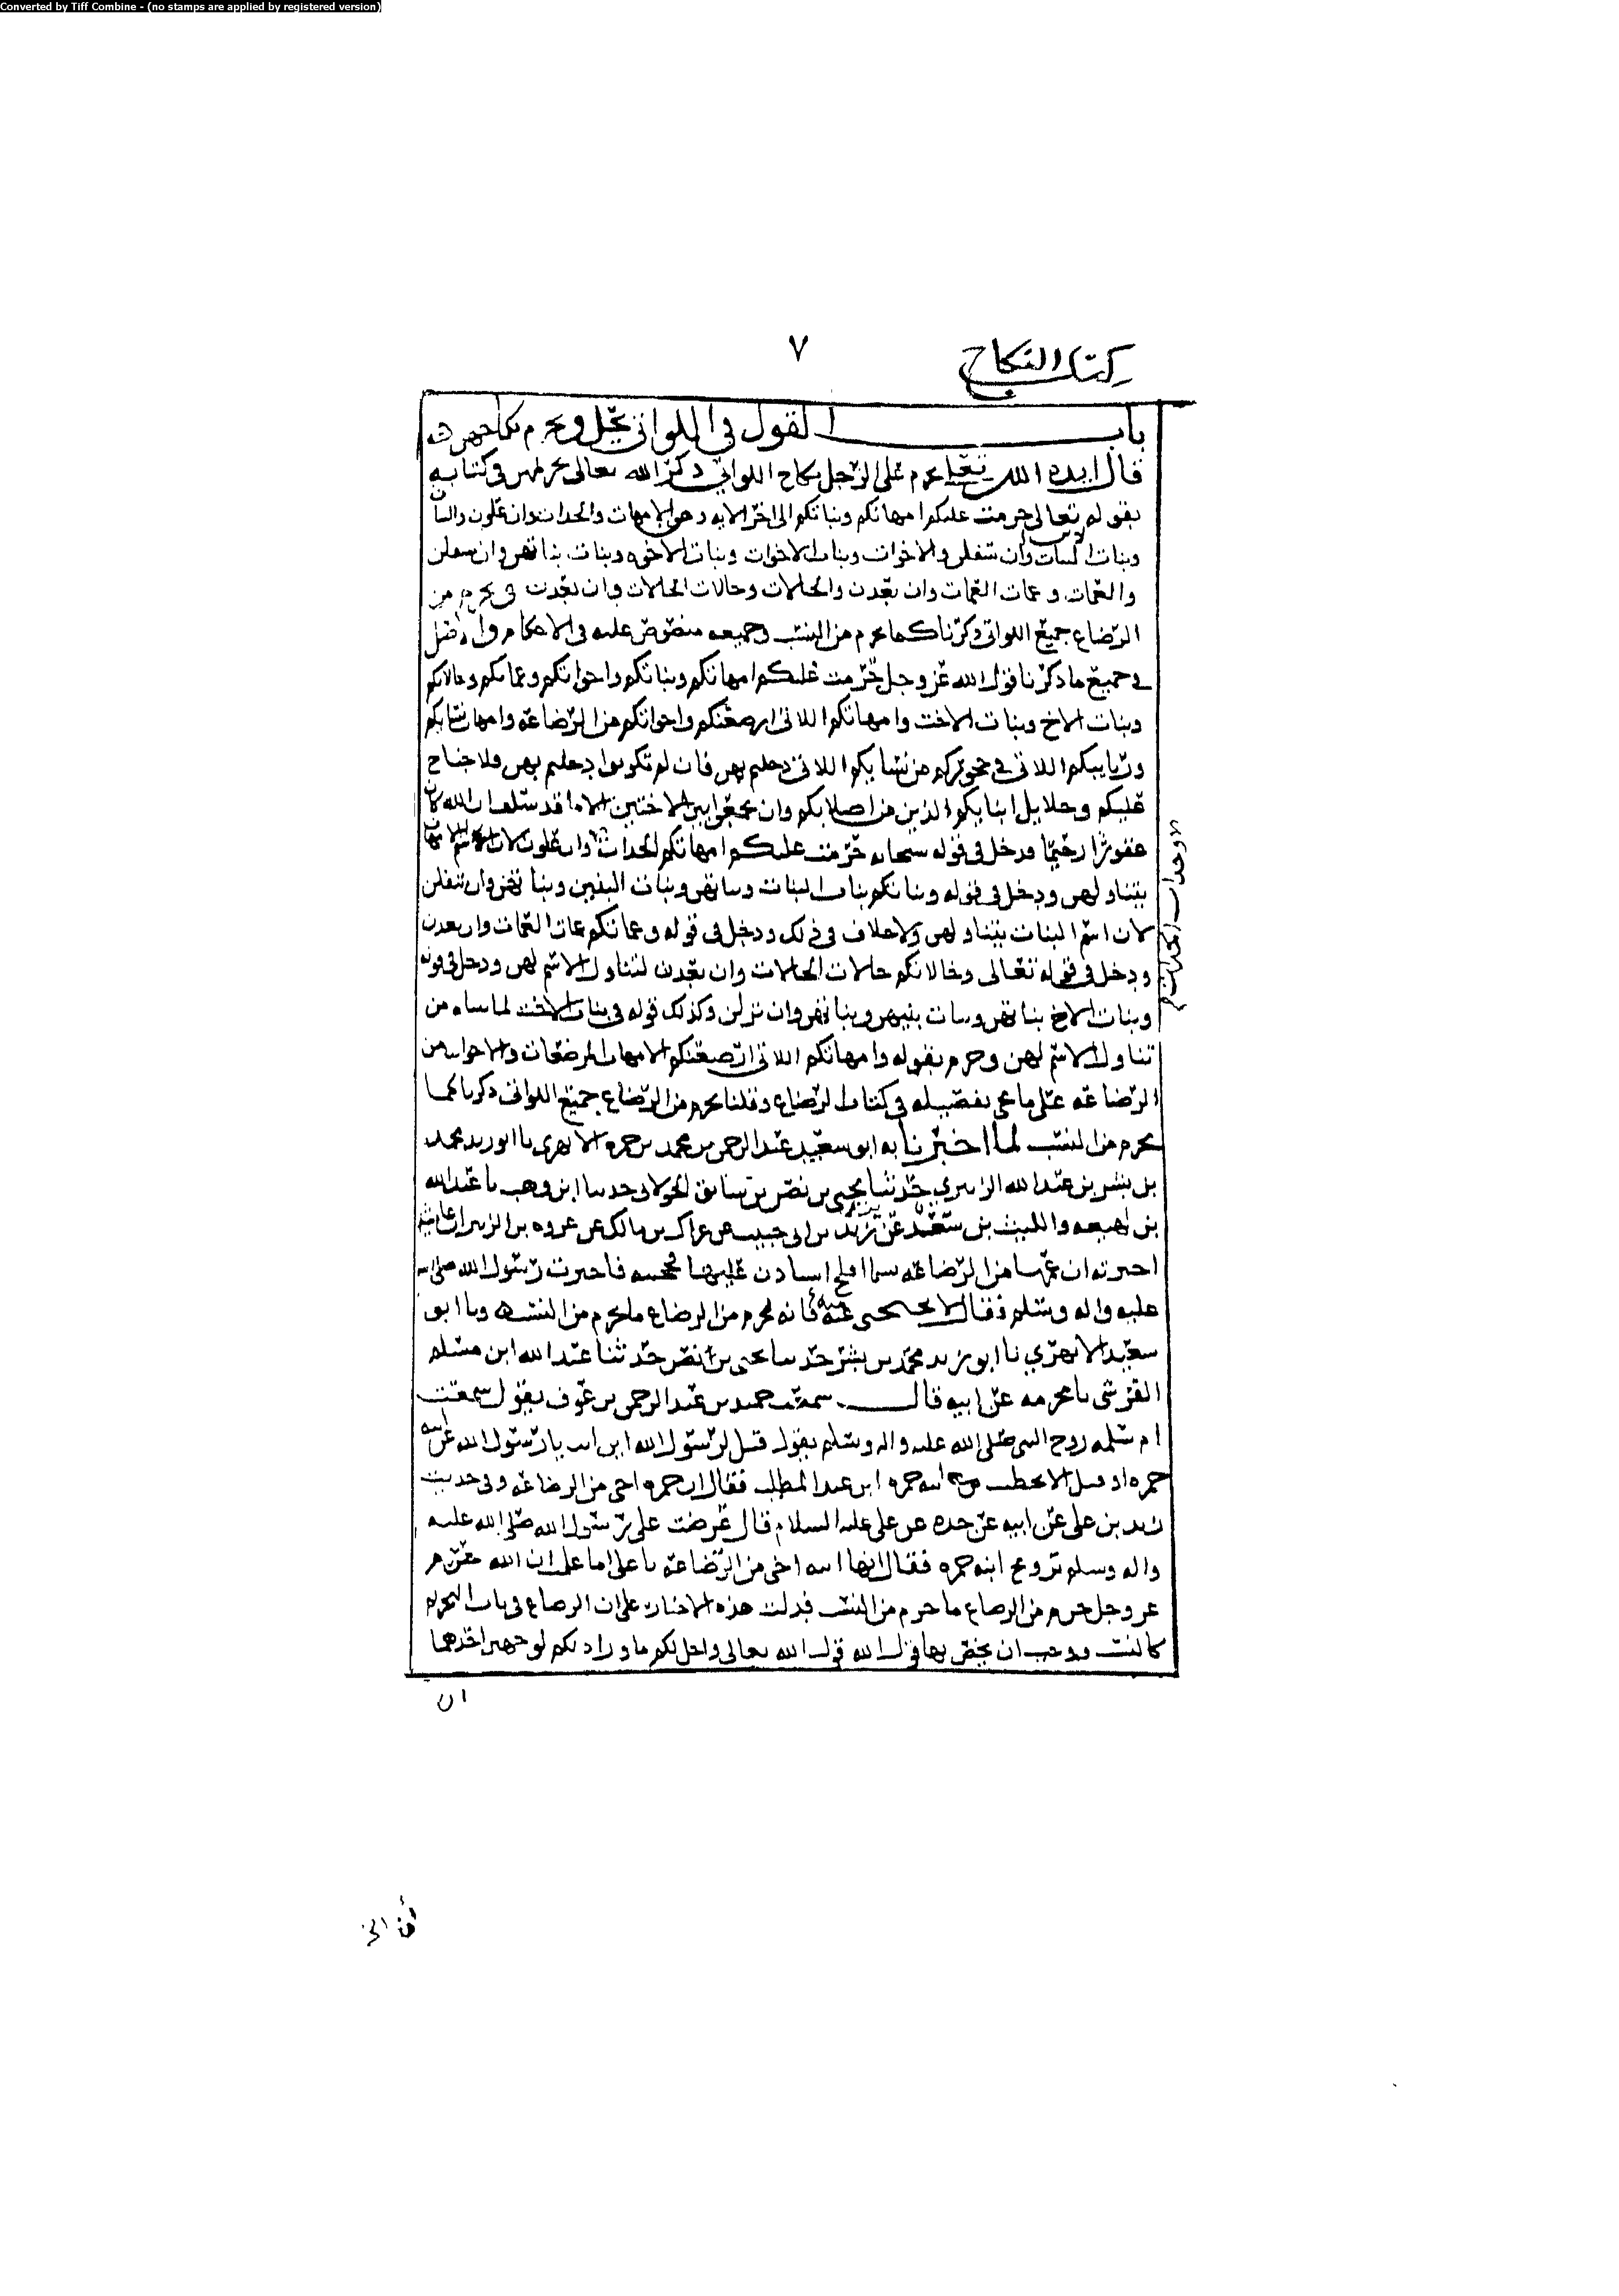 Converted by Tiff Combine - (no stamps are applied by registered version)
٧
كتاب النكاح
باب القول في اللواتي يحل ويحرم نكاحهن
قال ايده الله تعالى يحرم على الرجل نكاح اللواتي ذكر الله تعالى تحريمهن في كتابه
بقوله تعالى حرمت عليكم امهاتكم وبناتكم الى اخر الايه وهن الامهات والجدات وان علون والبنات
وبنات البنات وان سفلن والاخوات وبنات الاخوات وبنات الاخوه وبنات بناتهن وان سفلن
والعمات وعمات العمات وان بعدن والخالات وخالات الخالات وان بعدن ويحرم من
الرضاع جميع اللواتي ذكرنا كما يحرم من النسب وجميعه منصوص عليه في الاحكام والاصل
في جميع ما ذكرنا قول الله عز وجل حرمت عليكم امهاتكم وبناتكم واخواتكم وعماتكم وخالاتكم
وبنات الاخ وبنات الاخت وامهاتكم اللاتي ارضعنكم واخواتكم من الرضاعة وامهات نسايكم
وربايبكم اللاتي في حجوركم من نسايكم اللاتي دخلتم بهن فان لم تكونوا دخلتم بهن فلا جناح
عليكم وحلايل ابنايكم الذين من اصلابكم وان تجمعوا بين الاختين الا ما قد سلف ان الله كان
غفورا رحيما ودخل في قوله سبحانه حرمت عليكم امهاتكم الجدات وان علون لان الاسم
يتناولهن ودخل في قوله وبناتكم بنات البنات وبناتهن وبنات البنين وبناتهن وان سفلن
لان اسم البنات يتناولهن ولا خلاف في ذلك ودخل في قوله وعماتكم عمات العمات وان بعدن
ودخل في قوله تعالى وخالاتكم خالات الخالات وان بعدن لتناول الاسم لهن ودخل في قوله
وبنات الاخ بناتهن وبنات بنيهن وبناتهن وان نزلن وكذلك قوله في بنات الاخت لما بيناه من
تناول الاسم لهن وحرم بقوله وامهاتكم اللاتي ارضعنكم الامهات المرضعات والاخوات من
الرضاعه على ما يجي تفصيله في كتاب الرضاع وقلنا يحرم من الرضاع جميع اللواتي ذكرنا كما
يحرم من النسب لما اخبرنا به ابو سعيد عبد الرحمن بن محمد بن حمزه الابهري نا ابو زيد محمد
بن بشر بن عبد الله الزبيري حدثنا يحيى بن نصر بن سابق الخولاني حدثنا ابن وهب نا عبد الله
بن لهيعه والليث بن سعد عن يزيد بن ابي حبيب عن عراك بن مالك عن عروه بن الزبير ان عايشه
اخبرته ان عمها من الرضاعه يسمى افلح استاذن عليها فحجبته فاخبرت رسول الله صلى الله
عليه واله وسلم فقال لا تحتجبي عنه فانه يحرم من الرضاع ما يحرم من النسب ونا ابو
سعيد الابهري نا ابو زيد محمد بن بشر حدثنا يحيى بن نصر حدثنا عبد الله ابن مسلم
القرشي نا مخرمه عن ابيه قال سمعت حميد بن عبد الرحمن بن عوف يقول سمعت
ام سلمه زوج النبي صلى الله عليه واله وسلم يقول قيل لرسول الله اين انت يا رسول الله عن ابنه
حمزه او قيل الا تخطب ابنه حمزه ابن عبد المطلب فقال ان حمزه اخي من الرضاعه وفي حديث
زيد بن علي عن ابيه عن جده عن علي عليه السلام قال عرضت على رسول الله صلى الله عليه
واله وسلم تزويج ابنه حمزه فقال انها ابنه اخي من الرضاعه يا علي اما علمت ان الله
عز وجل حرم من الرضاع ما حرم من النسب فدلت هذه الاخبار على ان الرضاع في باب التحريم
كالنسب ووجب ان يخص بها قول الله قول الله تعالى واحل لكم ما وراء ذلكم لوجهين احدهما
ان